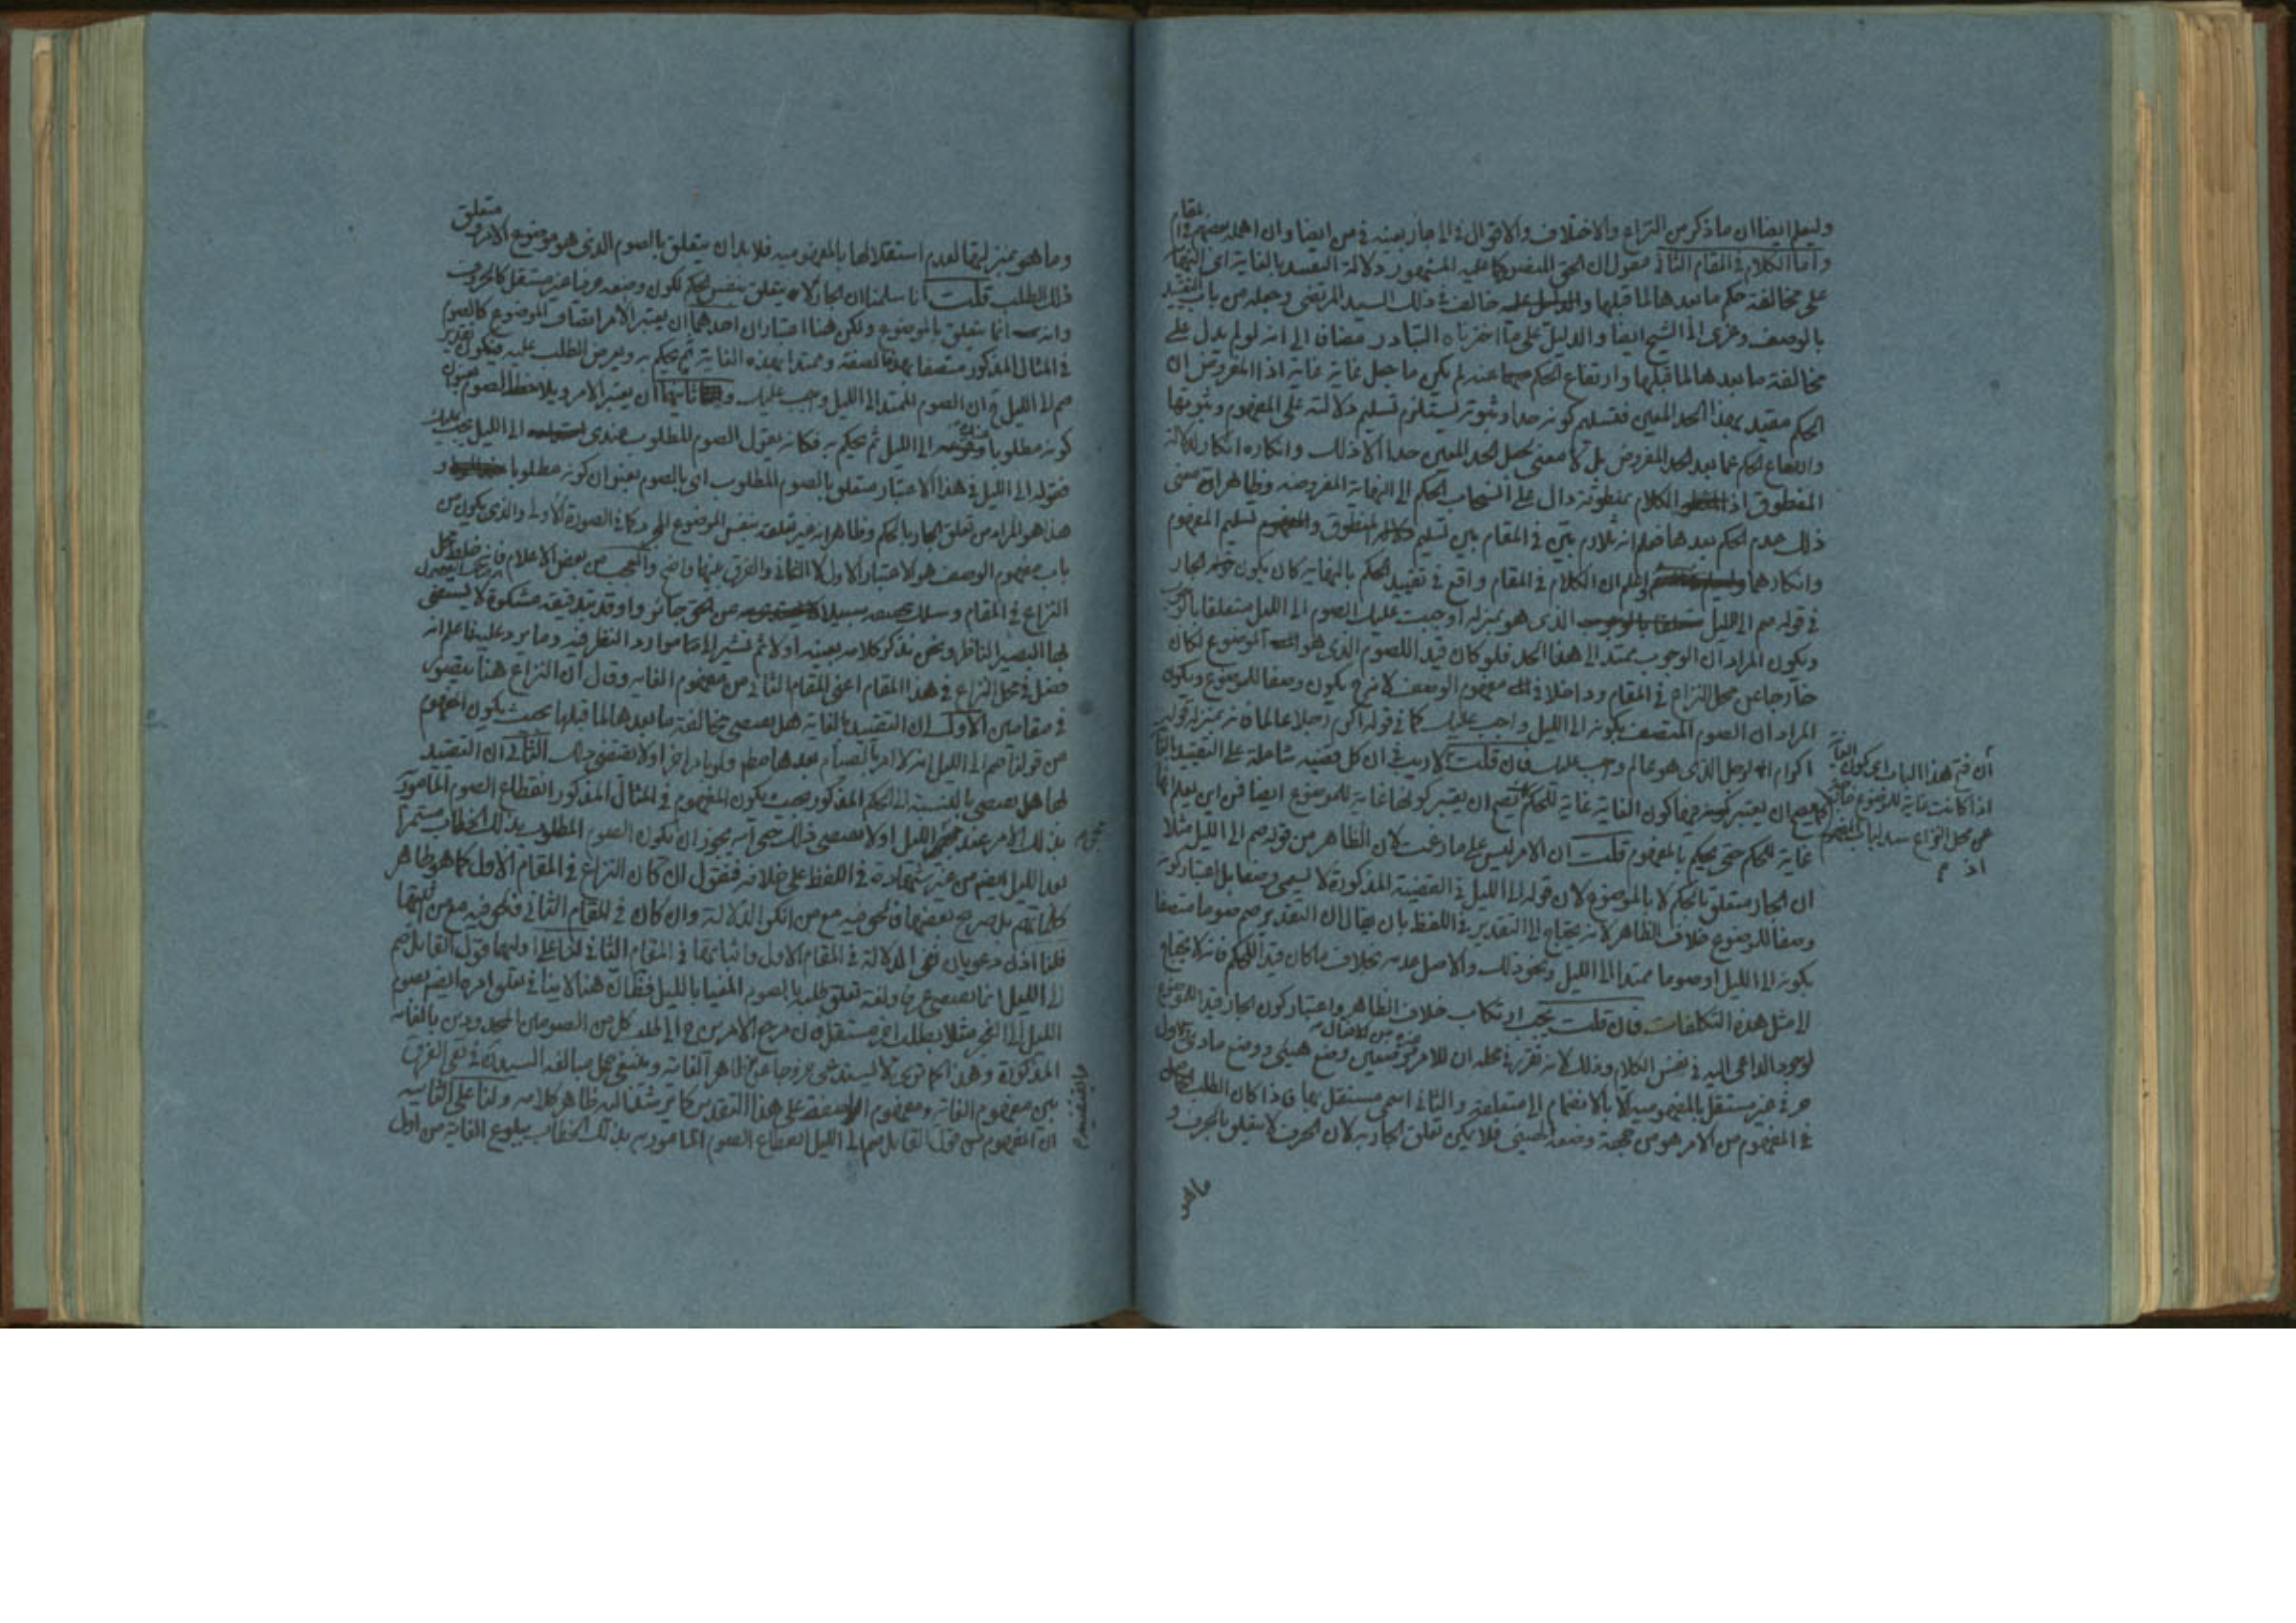 وليعلم ايضا ان ما ذكر من النزاع والاختلاف والاقوال في الى جار بعينه في من ايضا وان اهمله بعضهم في المقام
واما الكلام في المقام الثاني فنقول ان الحق المنصور كما عليه المشهور دلالة التقييد بالغاية اى النهاية
على مخالفة حكم ما بعدها لما قبلها خالف في ذلك السيد المرتضى وجعله من باب التقييد
بالوصف وعزى الى الشيخ ايضا والدليل على ما اخترناه التبادر مضاف الى انه لو لم يدل على
مخالفة ما بعدها لما قبلها وارتفاع الحكم عنده لم يكن ما جعل غاية غاية اذ المفروض ان
الحكم مقيد بهذا الحد المعين فتسليم كونه حدا وثبوته يستلزم تسليم دلالته على المفهوم وثبوتها
وارتفاع الحكم عما بعد الحد المفروض بل لا معنى لجعل الحد المعين حدا الا ذلك وانكاره انكار لدلالة
المنطوق اذ الكلام بمنطوقه دال على انسحاب الحكم الى النهاية المفروضه وظاهر ان معنى
ذلك عدم الحكم بعدها فعلم انه تلازم بين في المقام بين تسليم المنطوق تسليم المفهوم
وانكارهما اعلم ان الكلام في المقام واقع في تقييد الحكم بالنهاية كان يكون الجار
في قوله صم الى الليل الذى هو بمنزلة اوجبت عليك الصوم الى الليل متعلقا بالوجوب
ويكون المراد ان الوجوب ممتد الى هذا الحد فلو كان قيدا للصوم الذى هو الموضوع لكان
خارجا عن محل النزاع في المقام وداخلا في مفهوم الوصف لانه ح يكون وصفا للموضوع ويكون
المراد ان الصوم المتصف بكونه الى الليل واجب عليك كما في قوله اكرم رجلا عالما فانه بمنزلة قوله
اكرام الرجل الذى هو عالم واجب عليك فان قلت لا ريب في ان كل قضيه شاملة على التقييد بالغاية
كما يصح ان يعتبر فيها كون الغاية غاية للحكم يصح ان يعتبر كونها غاية للموضوع ايضا فمن اين يعلم انها
غاية للحكم حتى يحكم بالمفهوم قلت ان الامر ليس على ما زعمت لان الظاهر من قوله صم الى الليل مثلا
ان الجار متعلق بالحكم لا بالموضوع لان قوله الى الليل في القضية المذكورة لا يسمى وصفا بل اعتبار كونه
وصفا للموضوع خلاف الظاهر لانه يحتاج الى التقدير في اللفظ بان يقال ان التقدير صم صوما متصفا
بكونه الى الليل او صوما ممتدا الى الليل ونحو ذلك والاصل عدمه بخلاف ما كان قيدا للحكم فانه لا يحتاج
الى مثل هذه التكلفات فان قلت يجب ارتكاب خلاف الظاهر واعتبار كون الجار قيدا للموضوع
لوجود الداعى اليه في نفس الكلام وذلك لانه تقرر في محله ان للامر وضعين وضع هيئى ووضع مادى والاول
حرفى غير مستقل بالمفهوميه الا بالانضمام الى متعلقه والثانى اسمى مستقل بها فاذا كان الطلب
في المفهوم من الامر هو من جهة وضعه الهيئى فلا يمكن تعلق الجار به لان الحرف لا يتعلق بالحرف و
ما هو
ان فتح هذا الباب اى كون الغاية
اذا كانت غاية للموضوع خارجة
عن محل النزاع سد لباب المفهوم
اذ م
وما هو بمنزلتها لعدم استقلالها بالمفهوميه فلا بد ان يتعلق بالصوم الذى هو موضوع الامر ومتعلق
ذلك الطلب قلت انا سلمنا ان الجار لا يتعلق بنفس الحكم لكون وضعه حرفيا غير مستقل كالحروف
وانه انما يتعلق بالموضوع ولكن هنا اعتباران احدهما ان يعتبر الآمر اتصاف الموضوع كالصوم
في المثال المذكور متصفا بهذه الصفة وممتدا بهذه الغاية ثم يحكم به ويعرض الطلب عليه فيكون تقدير
صم الى الليل ان الصوم الممتد الى الليل واجب عليك وثانيهما ان يعتبر الامر ويلاحظ الصوم بعنوان
كونه مطلوبا الى الليل ثم يحكم به فكانه يقول الصوم المطلوب عندى الى الليل يجب عليك
فقوله الى الليل في هذا الاعتبار متعلق بالصوم المطلوب اى بالصوم بعنوان كونه مطلوبا و
هذا هو المراد من تعلق الجار بالحكم وظاهر انه غير تعلقه بنفس الموضوع المجرد كما في الصورة الاولى والذى يكون من
باب مفهوم الوصف هو الاعتبار الاول لا الثانى والفرق بينهما واضح والعجب من بعض الاعلام فانه خلط محل
النزاع في المقام وسلك سبيلا عن الحق جائر واوقد بتدقيقه مشكوة لا يستضئ
بها البصير الناظر ونحن نذكر كلامه بعينه اولا ثم نشير الى ما هو ارد النظر فيه وما يرد عليه فاعلم انه
فصل في محل النزاع في هذا المقام اعنى المقام الثانى من مفهوم الغايه وقال ان النزاع هنا يتصور
في مقامين الاول ان التقييد بالغاية هل يقتضى مخالفة ما بعدها لما قبلها بحيث يكون المفهوم
من قولنا صم الى الليل انه لا امر بالصيام بعدها مطلقا ولو بامر اخر او لا يقتضى ذلك الثانى ان التقييد
بها هل يقتضى بالنسبة الى الحكم المذكور بحيث يكون المفهوم في المثال المذكور انقطاع الصوم المامور به
بذلك الامر عند الليل او لا يقتضى ذلك حتى انه يجوز ان يكون الصوم المطلوب بذلك الخطاب مستمرا
بعد الليل ايضم من غير شهادة في اللفظ على خلافه فنقول ان كان النزاع في المقام الاول كما هو ظاهر
كلماتهم بل صريح بعضها فالحق فيه مع من انكر الدلالة وان كان في المقام الثانى فالحق فيه مع من اثبتها
فلنا اذن دعويان نفى الدلالة في المقام الاول واثباتها في المقام الثانى لنا على اوليهما قول القائل صم
الى الليل انما يقتضى عرفا ولغة تعلق طلبه بالصوم المغيا بالليل فظ ان هذا لا ينافى تعلق امره ايضم بصوم
الليل الى الفجر مثلا بطلب اخر مستقل فان مرجع الامرين ح الى طلب كل من الصومين المحدودين بالغايه
المذكورة وهذا كما ترى لا يستدعى خروجا عن ظاهر الغاية وينبغى حمل مبالغه السيد في نفى الفرق
بين مفهوم الغاية ومفهوم الصفة على هذا التقدير كما يرشد اليه ظاهر كلامه ولنا على الثانيه
ان المفهوم من قول القائل صم الى الليل انقطاع الصوم المامور به بذلك الخطاب ببلوغ الغاية من اول